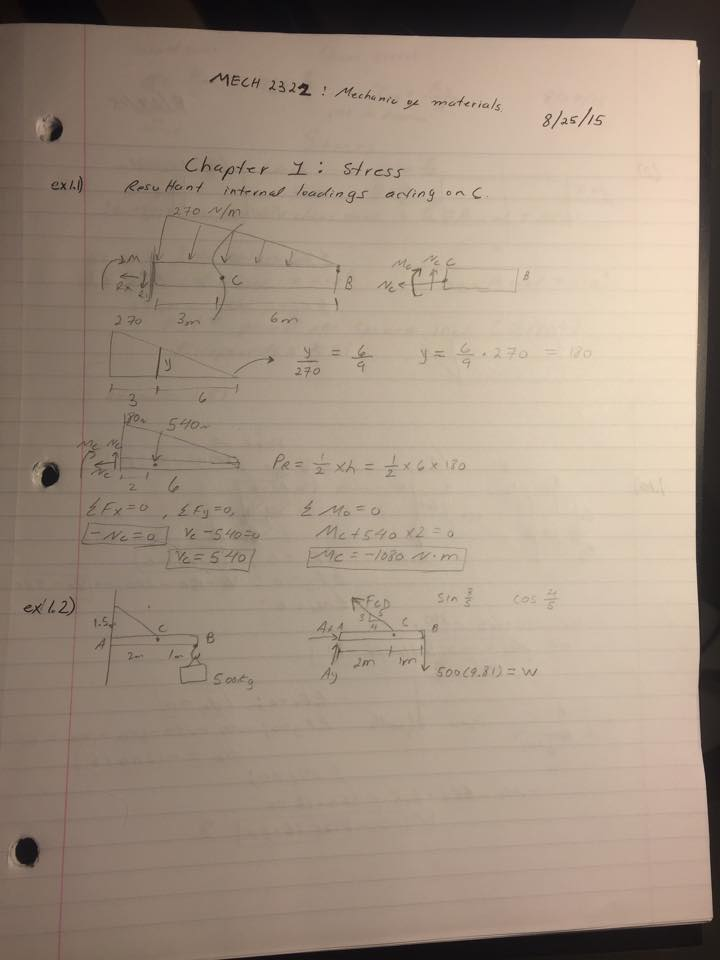 MECH 2322 : Mechanic of materials.
8/25/15
Chapter 1 : stress
ex1.1) Resultant internal loadings acting on C.
270 N/m
C B
3m 6m
Mc Nc C
Nc B
270
y
3 6
y/270 = 6/9 y = 6/9 · 270 = 180
180 540
Mc Nc
Nc
2 6
PR = 1/2 × h = 1/2 × 6 × 180
ΣFx = 0, ΣFy = 0, ΣMo = 0
-Nc = 0 Vc - 540 = 0 Mc + 540 × 2 = 0
Vc = 540 Mc = -1080 N·m
ex1.2)
1.5 C
A B
2m 1m
500kg
FCD sin 3/5 cos 4/5
3 5
4
Ax A C B
Ay 2m 1m
500(9.81) = W